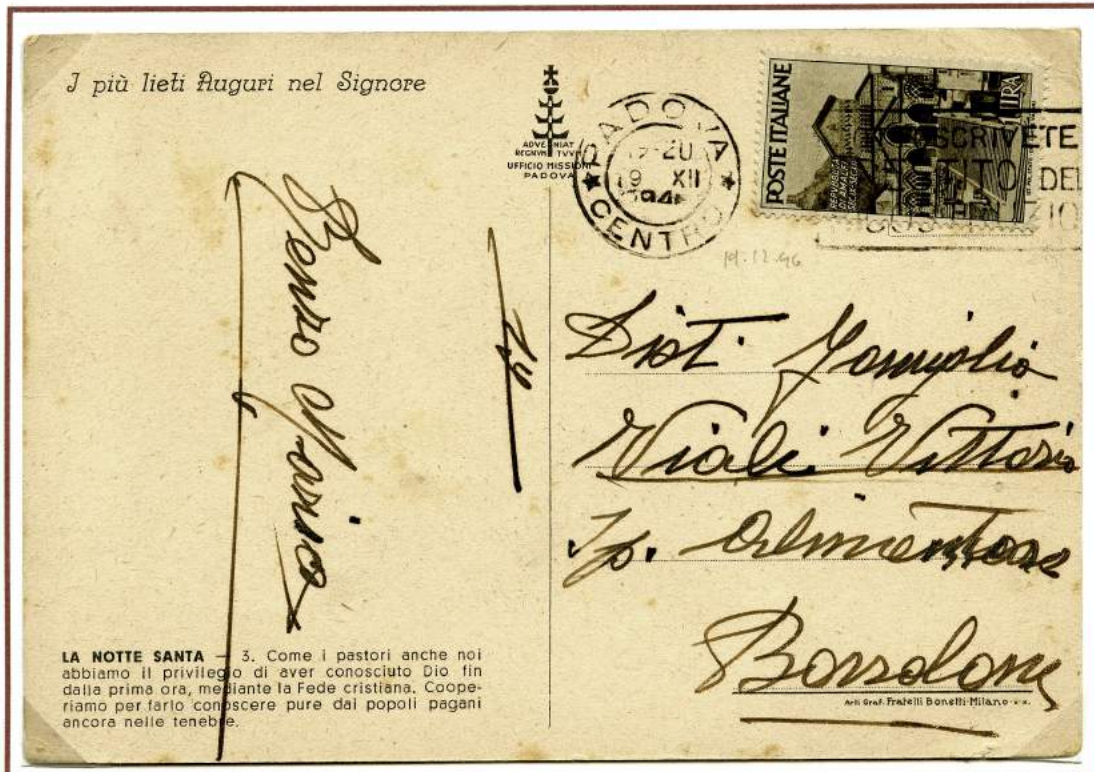 I più lieti Auguri nel Signore
ADVENIAT
REGNVM TVVM
UFFICIO MISSIONI
PADOVA
PADOVA
19-20
19 XII
1946
CENTRO
POSTE ITALIANE
LIRA
REPUBBLICA
DI AMALFI
SOTTOSCRIVETE
PRESTITO DEL
RICOSTRUZIO
19.12.46
Dist. Famiglia
Viali Vittorio
Alimentare
Marino
LA NOTTE SANTA — 3. Come i pastori anche noi
abbiamo il privilegio di aver conosciuto Dio fin
dalla prima ora, mediante la Fede cristiana. Coope-
riamo per farlo conoscere pure dai popoli pagani
ancora nelle tenebre.
Arti Graf. Fratelli Bonetti-Milano